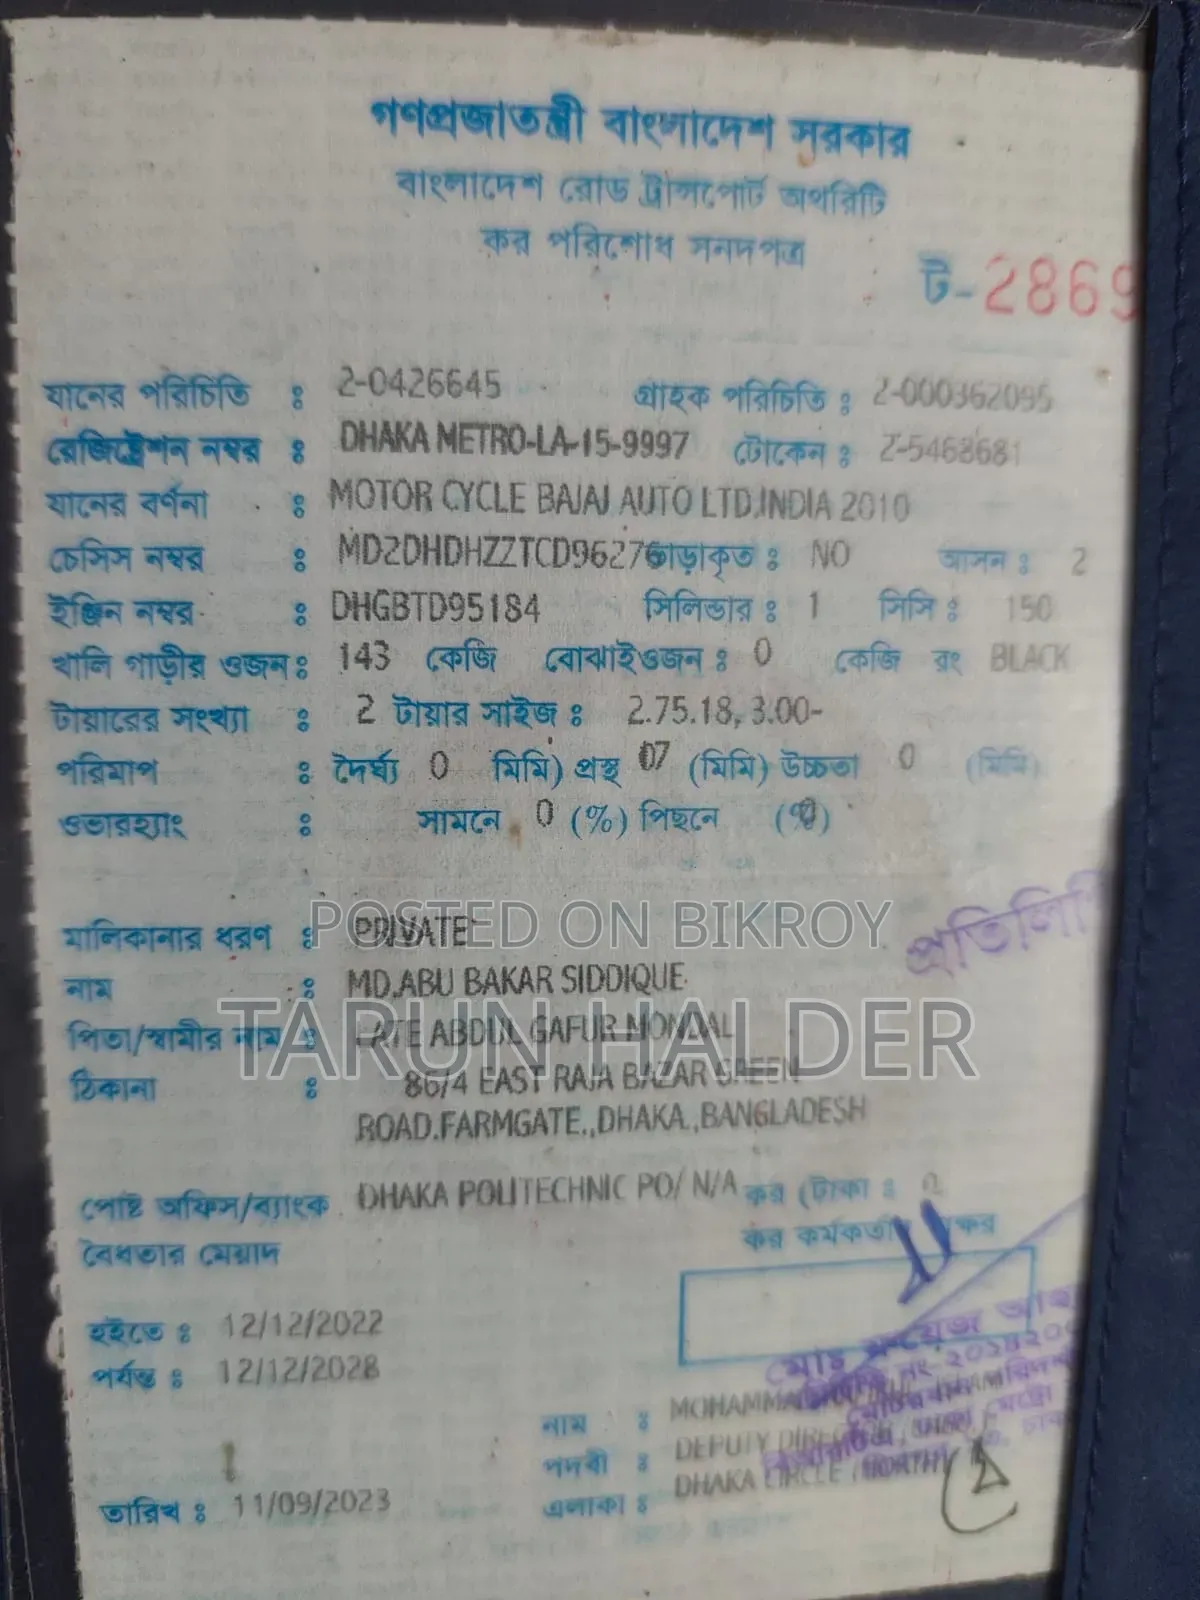 গণপ্রজাতন্ত্রী বাংলাদেশ সরকার
বাংলাদেশ রোড ট্রান্সপোর্ট অথরিটি
কর পরিশোধ সনদপত্র
ট-2869
যানের পরিচিতি : 2-0426645 গ্রাহক পরিচিতি : 2-000362095
রেজিষ্ট্রেশন নম্বর : DHAKA METRO-LA-15-9997 টোকেন : 2-5468681
যানের বর্ণনা : MOTOR CYCLE BAJAJ AUTO LTD.INDIA 2010
চেসিস নম্বর : MD2DHDHZZTCD96276 ভাড়াকৃত : NO আসন : 2
ইঞ্জিন নম্বর : DHGBTD95184 সিলিন্ডার : 1 সিসি : 150
খালি গাড়ীর ওজন : 143 কেজি বোঝাইওজন : 0 কেজি রং BLACK
টায়ারের সংখ্যা : 2 টায়ার সাইজ : 2.75.18, 3.00-
পরিমাপ : দৈর্ঘ্য 0 মিমি) প্রস্থ 07 (মিমি) উচ্চতা 0 (মিমি)
ওভারহ্যাং : সামনে 0 (%) পিছনে (%)
মালিকানার ধরণ : PRIVATE
POSTED ON BIKROY
প্রতিলিপি
নাম : MD.ABU BAKAR SIDDIQUE
TARUN HALDER
পিতা/স্বামীর নাম : LATE ABDUL GAFUR MONDAL
ঠিকানা : 86/4 EAST RAJA BAZAR GREEN
ROAD.FARMGATE.,DHAKA.,BANGLADESH
পোষ্ট অফিস/ব্যাংক DHAKA POLITECHNIC PO/ N/A কর (টাকা : 0
বৈধতার মেয়াদ কর কর্মকর্তার
হইতে : 12/12/2022
পর্যন্ত : 12/12/2028
নাম :
পদবী : DEPUTY
এলাকা : DHAKA CIRCLE
তারিখ : 11/09/2023